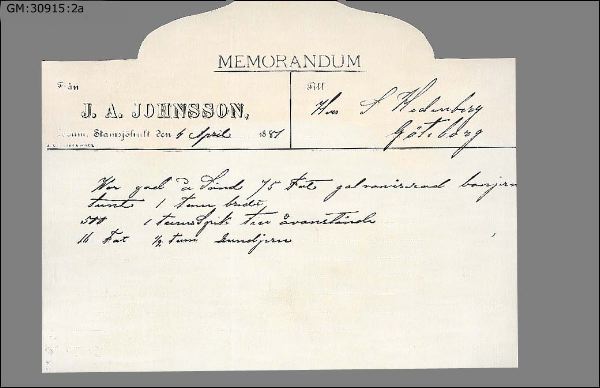 GM:30915:2a
MEMORANDUM
Från
J. A. JOHNSSON,
Stamsjöhult den 6 April 1881
Till
Herr S Hedenberg
Göteborg
War god å Sänd 75 Fot galvaniserad banjern
tunt 1 tum bredt
500 1 tums Spik till ovanstående
16 Fot ½ tum Rundjern